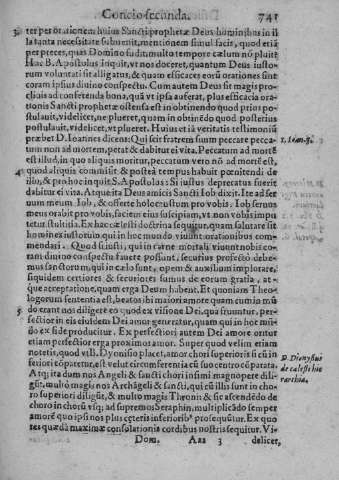 Concio secunda. 741
3. ter per orationem huius Sancti prophetæ Deus hominibus in il
la tanta necessitate subuenit, mentionem simul facit, quod etiã
per preces, quas Domino fudit, multo tempore cælum nõ pluit.
Hæc B. Apostolus inquit, vt nos doceret, quantum Deus iusto-
rum voluntati sit alligatus, & quam efficaces eorũ orationes sint
coram ipsius diuino conspectu. Cum autem Deus sit magis pro-
cliuis ad conferenda bona, quã vt ipsa auferat, plus efficacia ora-
tionis Sancti prophetæ ostensa est in obtinendo quod prius po-
stulauit, videlicet, ne plueret, quam in obtinẽdo quod posterius
postulauit, videlicet, vt plueret. Huius et iã veritatis testimoniũ
præbet D. Ioannes dicens: Qui scit fratrem suum peccare pecca-
tum non ad mortem, petat & dabitur ei vita. Peccatum ad mortẽ
est illud, in quo aliquis moritur, peccatum verò nõ ad mortẽ est,
4. quod aliquis commisit & postea tempus habuit pœnitendi de
illo, & pro hoc inquit S. Apostolus: Si iustus deprecatus fuerit
dabitur ei vita. Atque ita Deus amicis Sancti Iob dixit. Ite ad ser
uum meum Iob, & offerte holocaustum pro vobis: Iob seruus
meus orabit pro vobis, faciem eius suscipiam, vt non vobis impu
tetur stultitia. Ex hac cælesti doctrina sequitur, quam salutare sit
homines iustorum, qui in hoc mundo viuunt orationibus com-
mendari. Quod si iusti, qui in carne mortali viuunt nobis co-
ram diuino conspectu fauere possunt, securius profectò debe-
mus sanctorum, qui in cælo sunt, opem & auxilium implorare,
siquidem certiores & securiores sumus de eorum gratia, at-
que acceptatione, quam erga Deum habent. Et quoniam Theo-
logorum sententia est, beatos ibi maiori amore quam cum io mũ
5. do erant nos diligere eo quod ex visione Dei, qua fruuntur, per-
fectior in eis eiusdem Dei amor generatur, quam qui in hoc mũ-
do ex fide producitur. Ex perfectiori autem Dei amore oritur
etiam perfectior erga proximos amor. Super quod velim etiam
notetis, quod vt B. Dyonisio placet, amor chori superioris si cũ in
feriori cõparetur, est velut circumferentia cũ suo centro cõparata.
Atque ita dum nos Angeli & sancti chori infimi magnopere dili-
gũt, multò magis nos Archãgeli & sancti, qui cũ illis sunt in cho-
ro superiori diligũt, & multò magis Throni & sic ascendẽdo de
choro in chorũ vsque ad supremos Seraphin, multiplicãdo semper
amorẽ quo ipsi nos plus ceteris inferioribꝰ prosequũtur. Ex quo
res quædã maximæ consolationis cordibus nostris sequitur. Vi-
Dom. Aaa 3 delicet,
1. Ioan. 5.
D. Dionysius
de cælesti hie
rarchia.